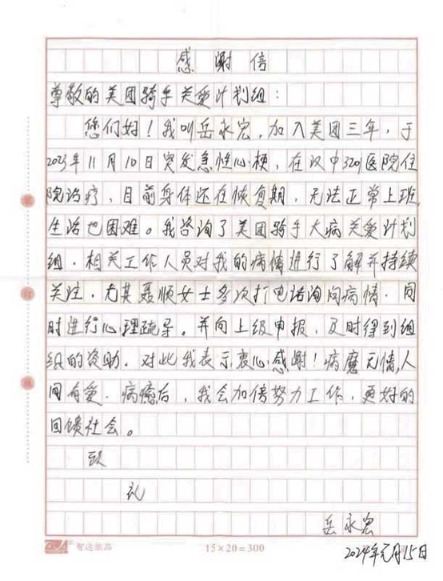 感谢信
尊敬的美团骑手关爱计划组：
您们好！我叫岳永宏，加入美团三年，于
2023年11月10日突发急性心梗，在汉中3201医院住
院治疗，目前身体还在恢复期，无法正常上班
生活也困难。我咨询了美团骑手大病关爱计划
组，相关工作人员对我的病情进行了解并持续
关注，尤其聂顺女士多次打电话询问病情，同
时进行心理疏导。并向上级申报，及时得到组
织的资助，对此我表示衷心感谢！病魔无情，人
间有爱。病癒后，我会加倍努力工作，更好的
回馈社会。
致
礼
岳永宏
15×20=300
2024年元月15日